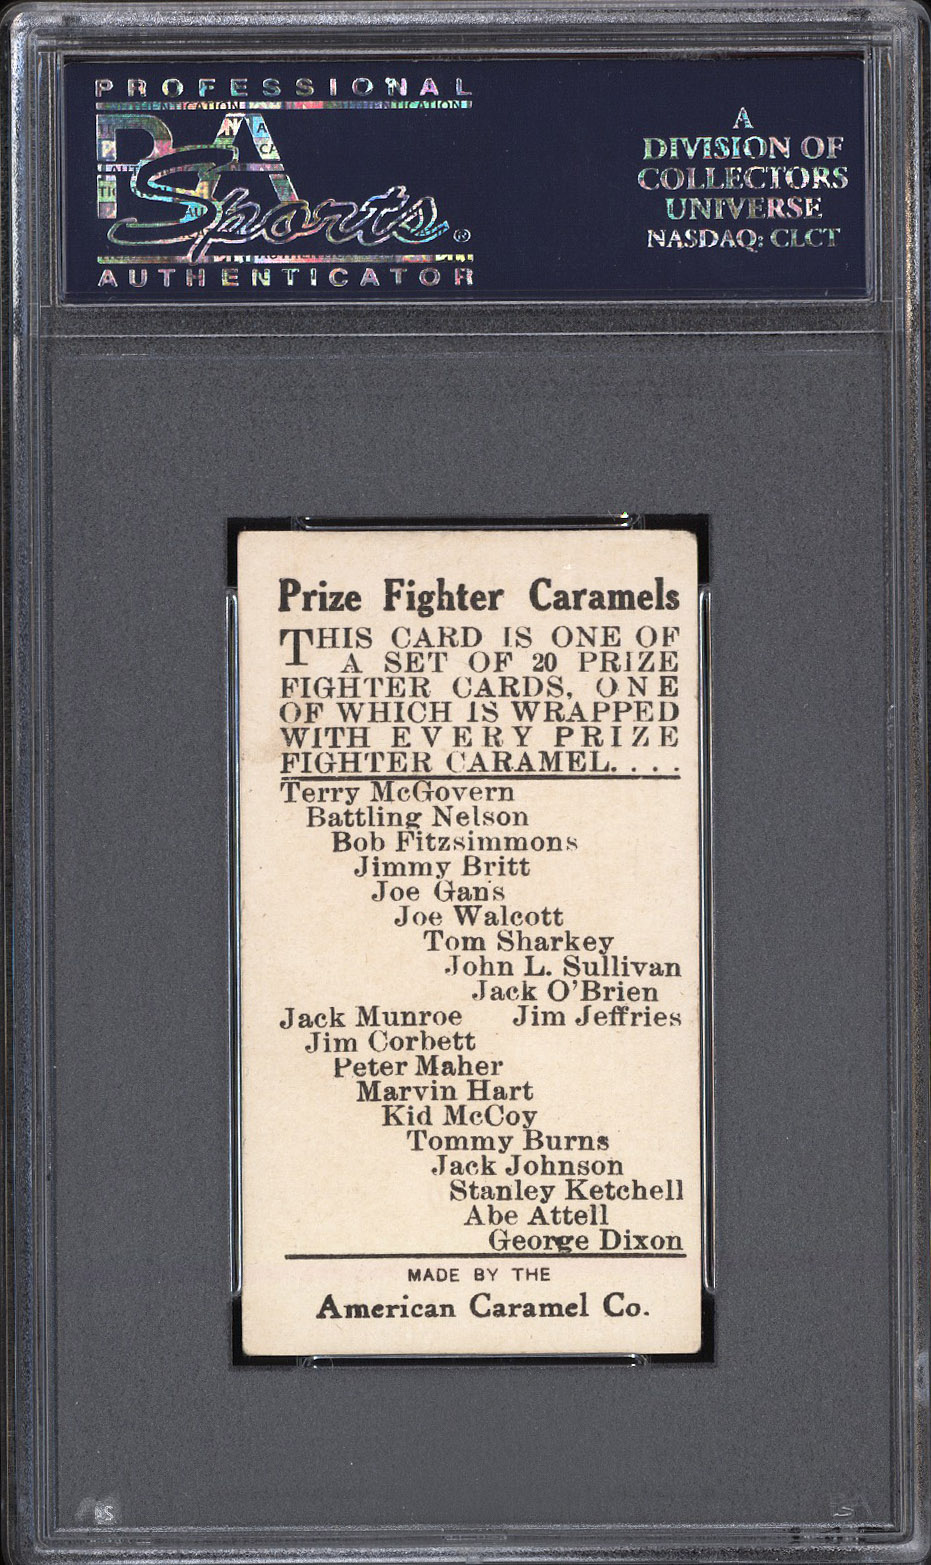 PROFESSIONAL
PSA
Sports®
AUTHENTICATOR
A
DIVISION OF
COLLECTORS
UNIVERSE
NASDAQ: CLCT
Prize Fighter Caramels
THIS CARD IS ONE OF
A SET OF 20 PRIZE
FIGHTER CARDS, ONE
OF WHICH IS WRAPPED
WITH EVERY PRIZE
FIGHTER CARAMEL. . . .
Terry McGovern
Battling Nelson
Bob Fitzsimmons
Jimmy Britt
Joe Gans
Joe Walcott
Tom Sharkey
John L. Sullivan
Jack O'Brien
Jack Munroe Jim Jeffries
Jim Corbett
Peter Maher
Marvin Hart
Kid McCoy
Tommy Burns
Jack Johnson
Stanley Ketchell
Abe Attell
George Dixon
MADE BY THE
American Caramel Co.